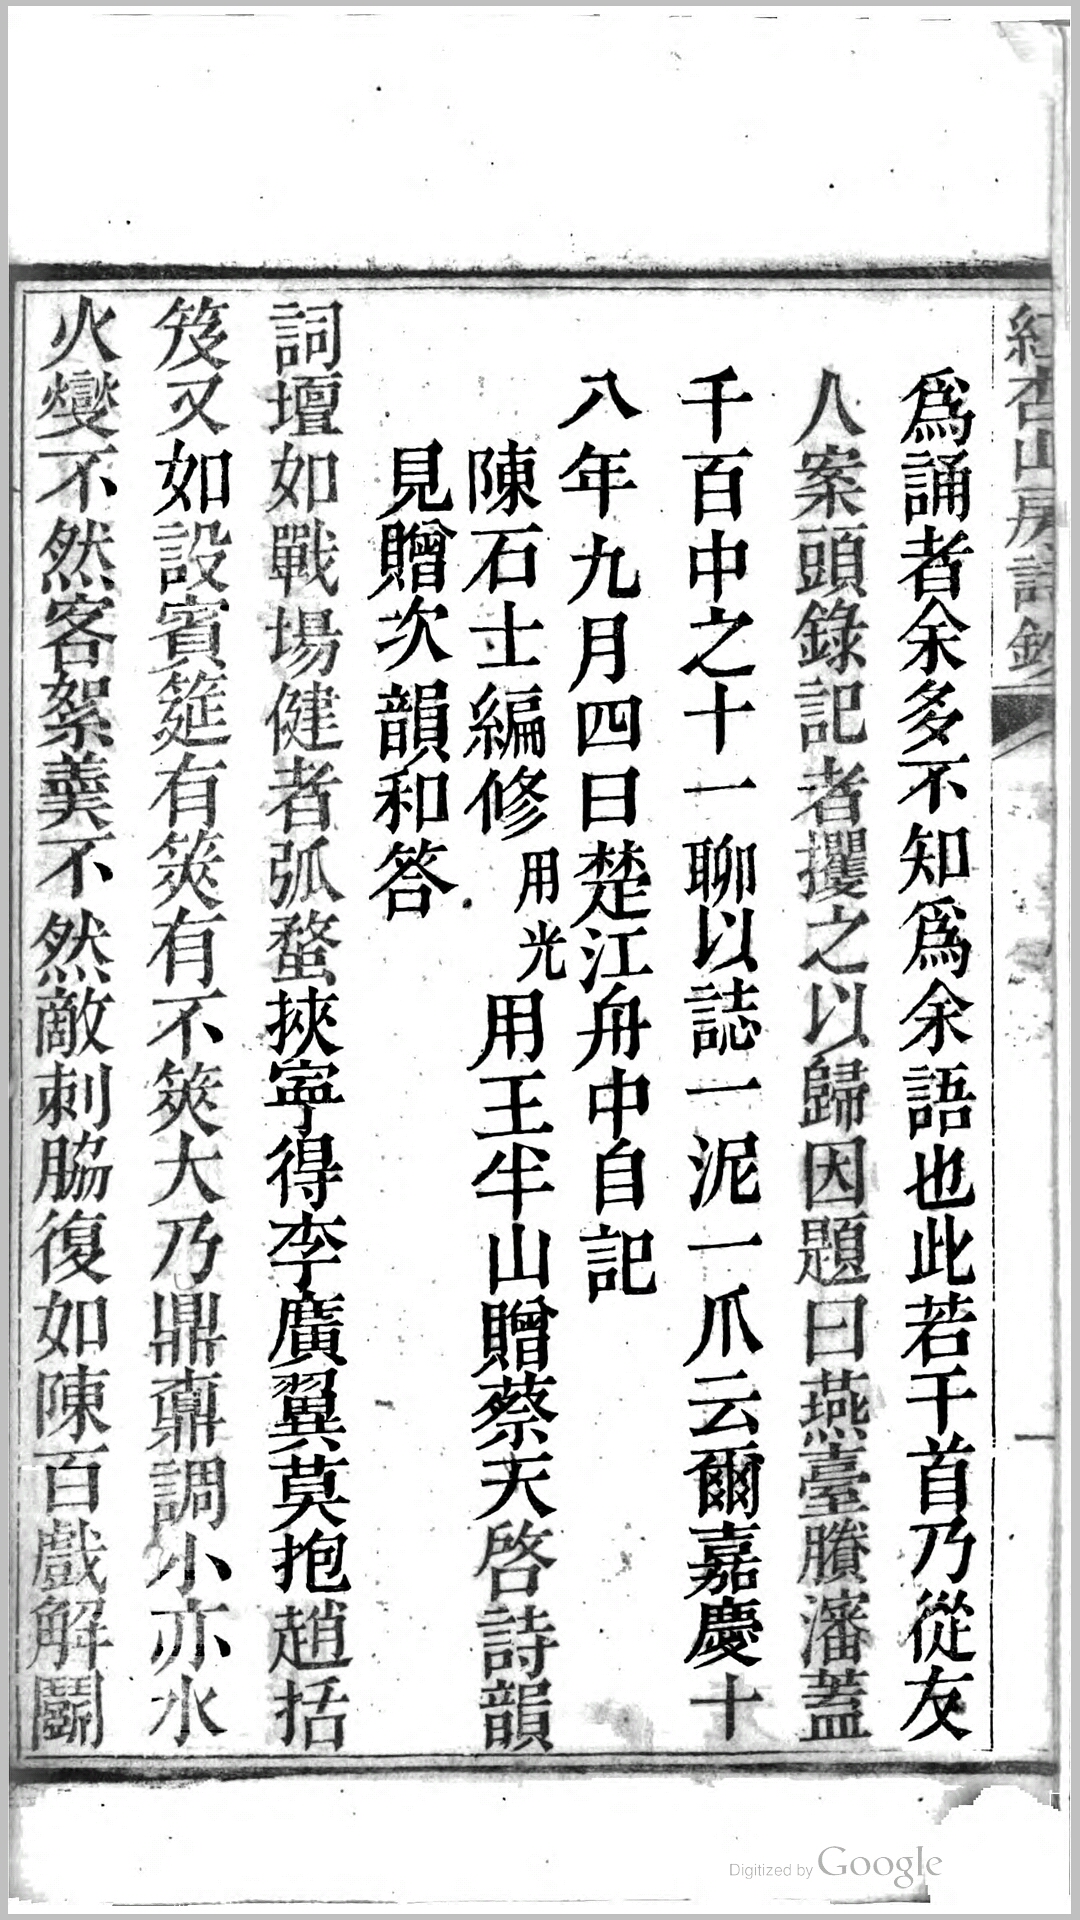 紅杏山房詩鈔
一
為誦者余多不知為余語也此若干首乃從友
人案頭錄記者攫之以歸因題曰燕臺賸瀋蓋
千百中之十一聊以誌一泥一爪云爾嘉慶十
八年九月四日楚江舟中自記
陳石士編修用光用王半山贈蔡天啓詩韻
見贈次韻和答
詞壇如戰場健者弧蝥挾寧得李廣翼莫抱趙括
笈又如設賓筵有筴有不筴大乃鼎鼐調小亦水
火燮不然客絮羹不然敵刺脇復如陳百戲解鬭
Digitized by Google